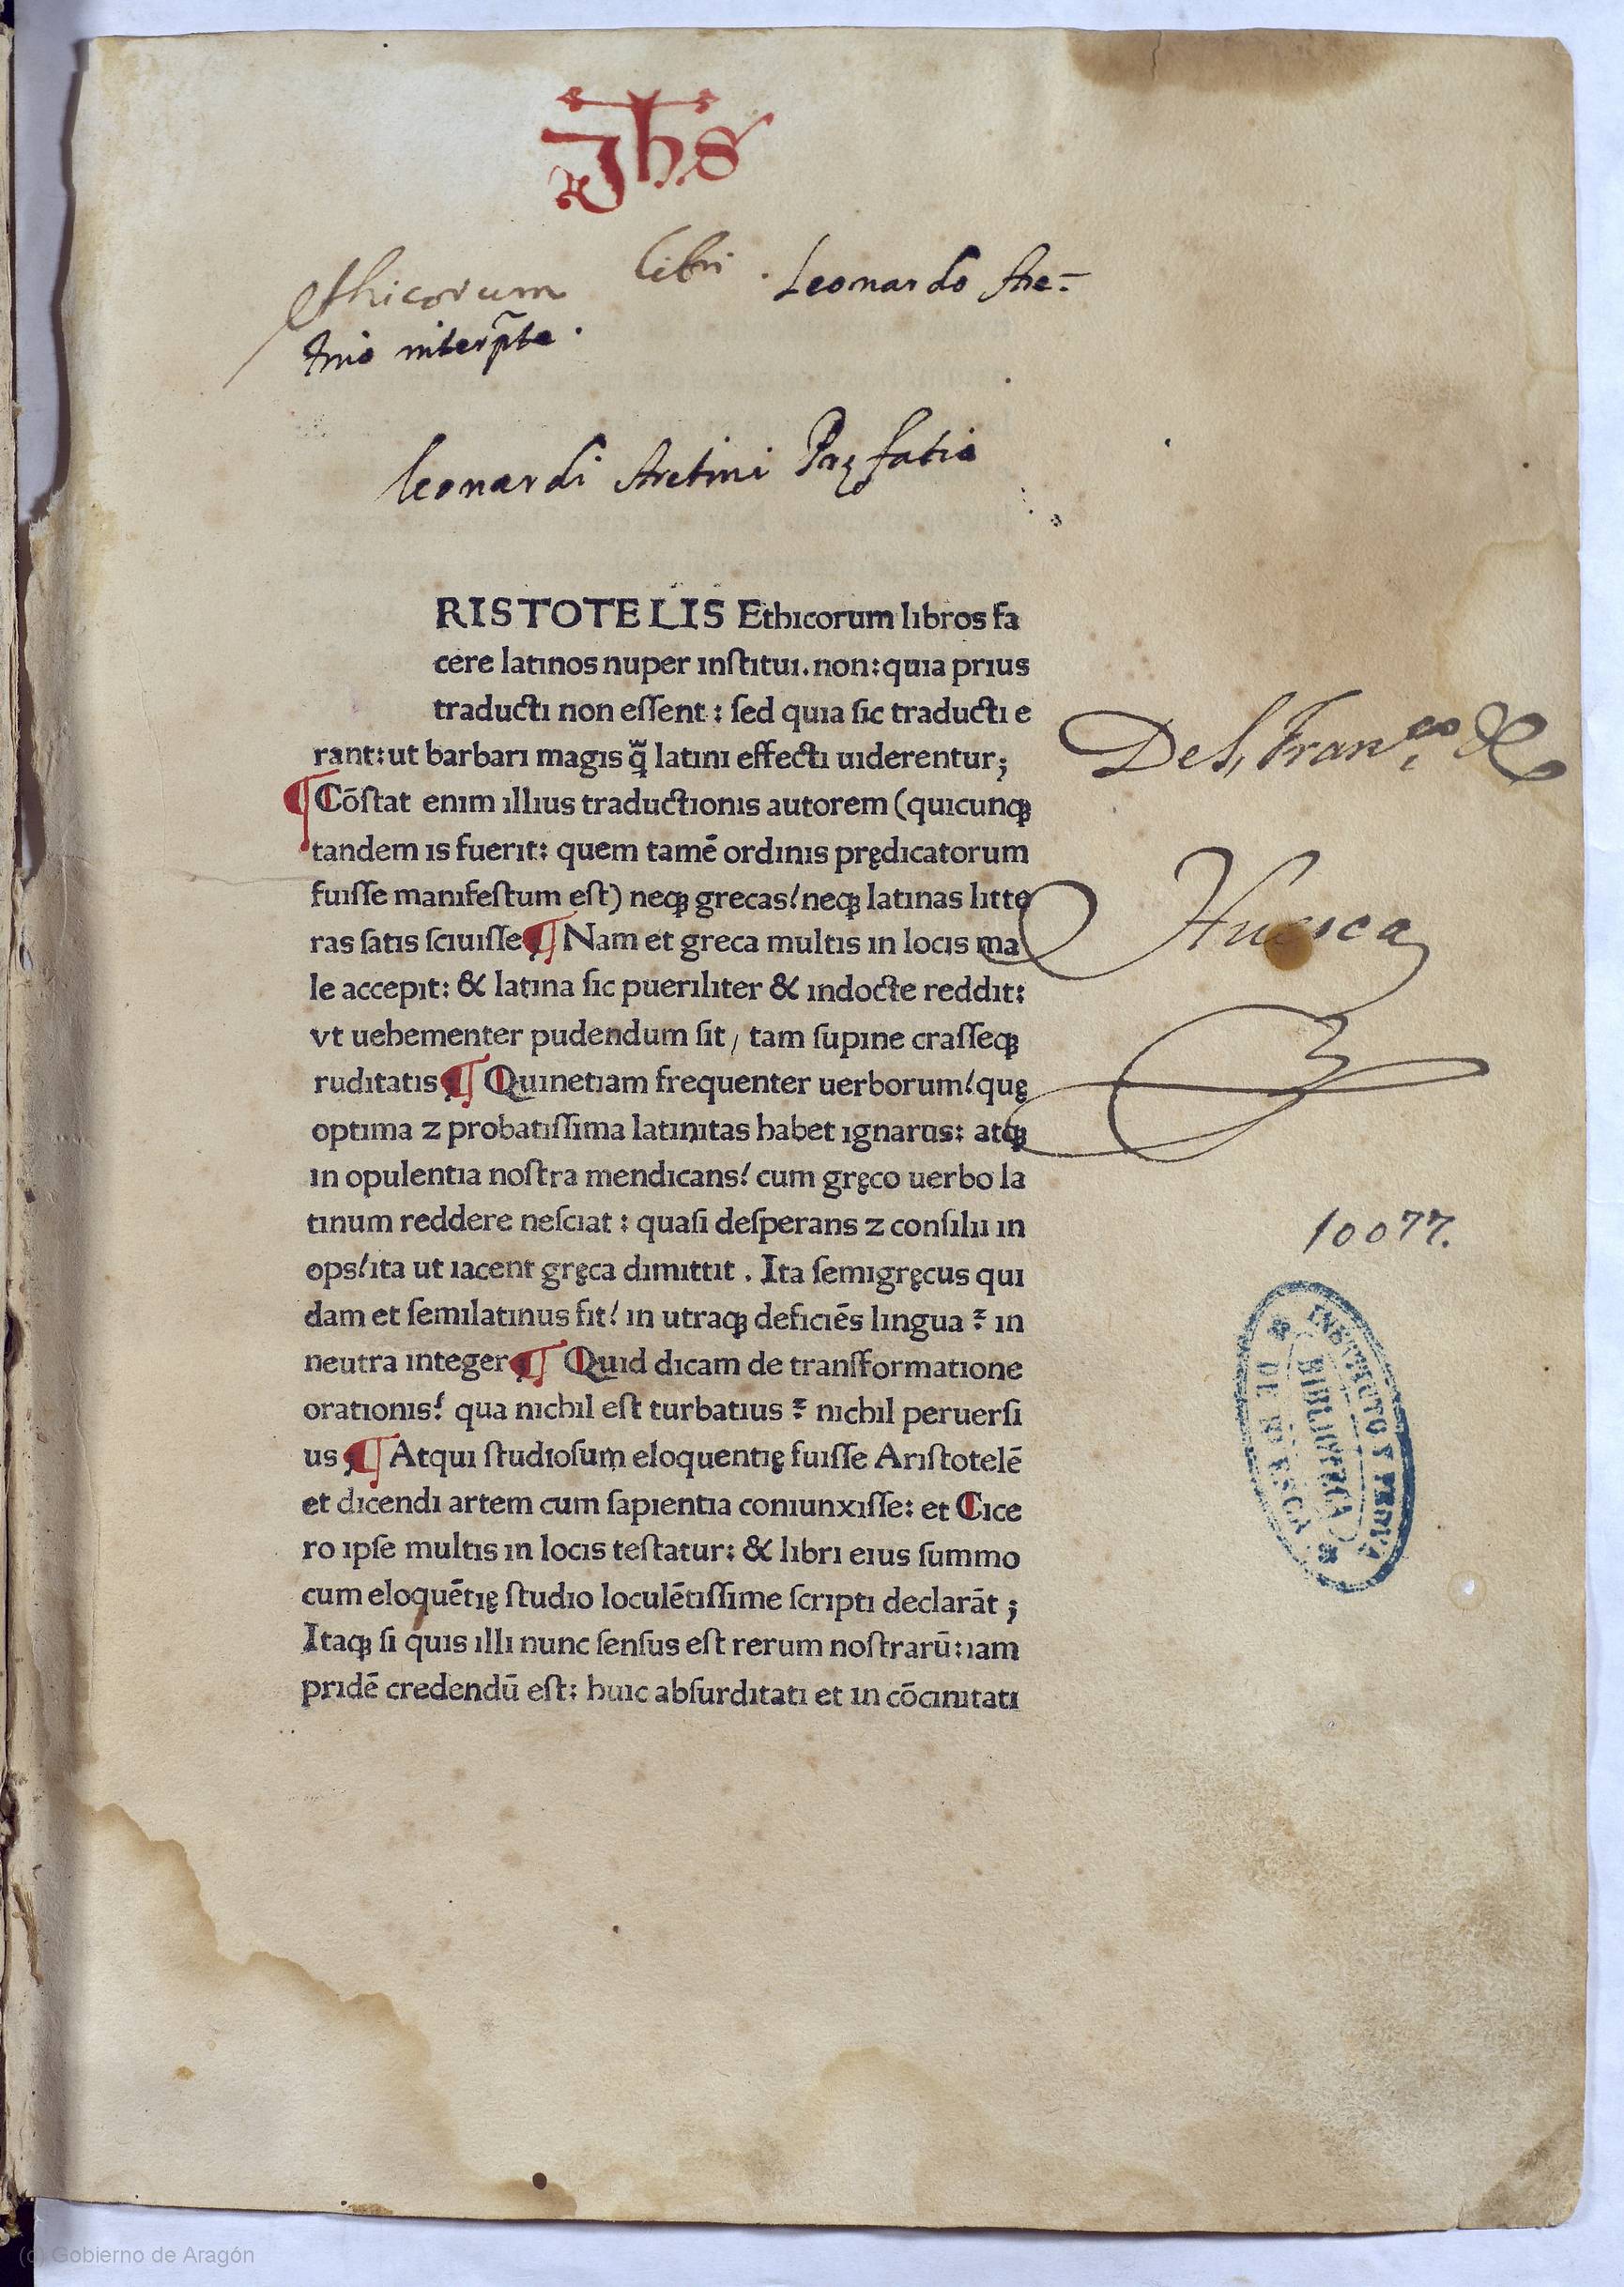 Jhs
Ethicorum libri . Leonardo Are-
tino interp̃te .
Leonardi Aretini Pręfatio
RISTOTELIS Ethicorum libros fa
cere latinos nuper inſtitui. non: quia prius
traducti non eſſent : ſed quia ſic traducti e
rant: ut barbari magis q̃ latini effecti uiderentur;
¶ Cōſtat enim illius traductionis autorem (quicunqꝫ
tandem is fuerit: quem tamē ordinis prędicatorum
fuiſſe manifeſtum eſt) neqꝫ grecas/ neqꝫ latinas litte
ras ſatis ſciuiſſe ¶ Nam et greca multis in locis ma
le accepit: & latina ſic pueriliter & indocte reddit:
vt uehementer pudendum ſit / tam ſupine craſſeqꝫ
ruditatis ¶ Quinetiam frequenter uerborum/ quę
optima z probatiſſima latinitas habet ignarus: atqꝫ
in opulentia noſtra mendicans/ cum gręco uerbo la
tinum reddere neſciat : quaſi deſperans z conſilii in
ops/ ita ut iacent gręca dimittit . Ita ſemigręcus qui
dam et ſemilatinus fit/ in utraqꝫ deficiēs lingua ⁊ in
neutra integer ¶ Quid dicam de tranſformatione
orationis/ qua nichil eſt turbatius ⁊ nichil peruerſi
us ¶ Atqui ſtudioſum eloquentię fuiſſe Ariſtotelē
et dicendi artem cum ſapientia coniunxiſſe: et Cice
ro ipſe multis in locis teſtatur: & libri eius ſummo
cum eloquētię ſtudio loculētiſſime ſcripti declarāt ;
Itaqꝫ ſi quis illi nunc ſenſus eſt rerum noſtrarū: iam
pridē credendū eſt: huic abſurditati et in cōcinitati
De S, Fran.co de
Huesca
10077.
INSTITUTO Y PROVIA
BIBLIOTECA
DE HUESCA
(c) Gobierno de Aragón